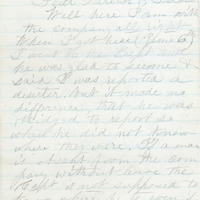 Well here I am with
the company all right
When I got here (June 6)
I went to the
he was glad to see me &
said I was reported a
deserter. But it made no
difference that he was
obliged to report so
while he did not know
where they were. If a man
is absent from the com
pany without leave the
Capt is not supposed to
know where he is even